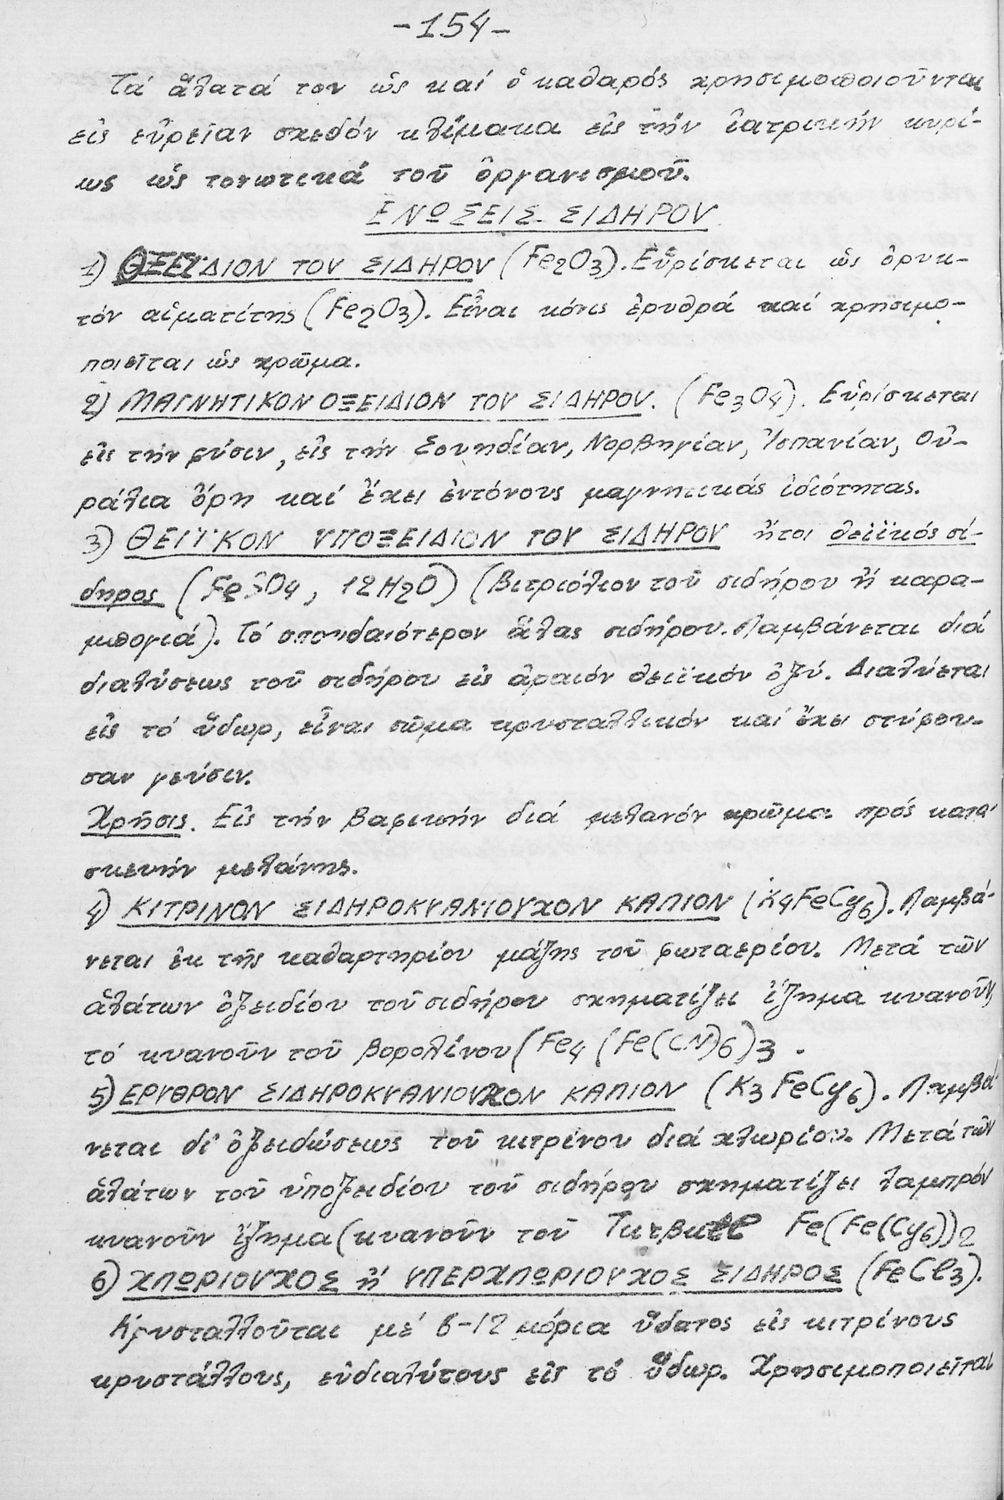 -154-
Τά ἅλατά του ὡς καί ὁ καθαρός χρησιμοποιοῦνται
εἰς εὐρεῖαν σχεδόν κλίμακα εἰς τήν ἰατρικήν κυρί-
ως ὡς τονωτικά τοῦ ὀργανισμοῦ.
ΕΝΩΣΕΙΣ ΣΙΔΗΡΟΥ
1) ΟΞΕΙΔΙΟΝ ΤΟΥ ΣΙΔΗΡΟΥ (Fe2O3). Εὑρίσκεται ὡς ὀρυκ-
τόν αἱματίτης (Fe2O3). Εἶναι κόνις ἐρυθρά καί χρησιμο-
ποιεῖται ὡς χρῶμα.
2) ΜΑΓΝΗΤΙΚΟΝ ΟΞΕΙΔΙΟΝ ΤΟΥ ΣΙΔΗΡΟΥ. (Fe3O4). Εὑρίσκεται
εἰς τήν φύσιν, εἰς τήν Σουηδίαν, Νορβηγίαν, Ἱσπανίαν, Οὐ-
ράλια ὄρη καί ἔχει ἐντόνους μαγνητικάς ἰδιότητας.
3) ΘΕΙΪΚΟΝ ΥΠΟΞΕΙΔΙΟΝ ΤΟΥ ΣΙΔΗΡΟΥ ἤτοι θειϊκός σί-
δηρος (FeSO4, 12H2O) (Βιτριόλιον τοῦ σιδήρου ἤ καρα-
μπογιά). Τό σπουδαιότερον ἅλας σιδήρου. Λαμβάνεται διά
διαλύσεως τοῦ σιδήρου εἰς ἀραιόν θειϊκόν ὀξύ. Διαλύεται
εἰς τό ὕδωρ, εἶναι σῶμα κρυσταλλικόν καί ἔχει στύφου-
σαν γεύσιν.
Χρῆσις. Εἰς τήν βαφικήν διά μελανόν χρῶμα πρός κατα-
σκευήν μελάνης.
4) ΚΙΤΡΙΝΟΝ ΣΙΔΗΡΟΚΥΑΝΙΟΥΧΟΝ ΚΑΛΙΟΝ (K4FeCy6). Λαμβά-
νεται ἐκ τῆς καθαρτηρίου μάζης τοῦ φωταερίου. Μετά τῶν
ἁλάτων ὀξειδίου τοῦ σιδήρου σχηματίζει ἵζημα κυανοῦν,
τό κυανοῦν τοῦ βορολίνου (Fe4 (Fe(CN)6)3.
5) ΕΡΥΘΡΟΝ ΣΙΔΗΡΟΚΥΑΝΙΟΥΧΟΝ ΚΑΛΙΟΝ (K3 FeCy6). Λαμβά
νεται δι' ὀξειδώσεως τοῦ κιτρίνου διά χλωρίου. Μετά τῶν
ἁλάτων τοῦ ὑποξειδίου τοῦ σιδήρου σχηματίζει λαμπρόν
κυανοῦν ἵζημα (κυανοῦν τοῦ Fe(Fe(Cy6))2
6) ΧΛΩΡΙΟΥΧΟΣ ἤ ΥΠΕΡΧΛΩΡΙΟΥΧΟΣ ΣΙΔΗΡΟΣ (FeCl3).
Κρυσταλλοῦται μέ 6-12 μόρια ὕδατος εἰς κιτρίνους
κρυστάλλους, εὐδιαλύτους εἰς τό ὕδωρ. Χρησιμοποιεῖται